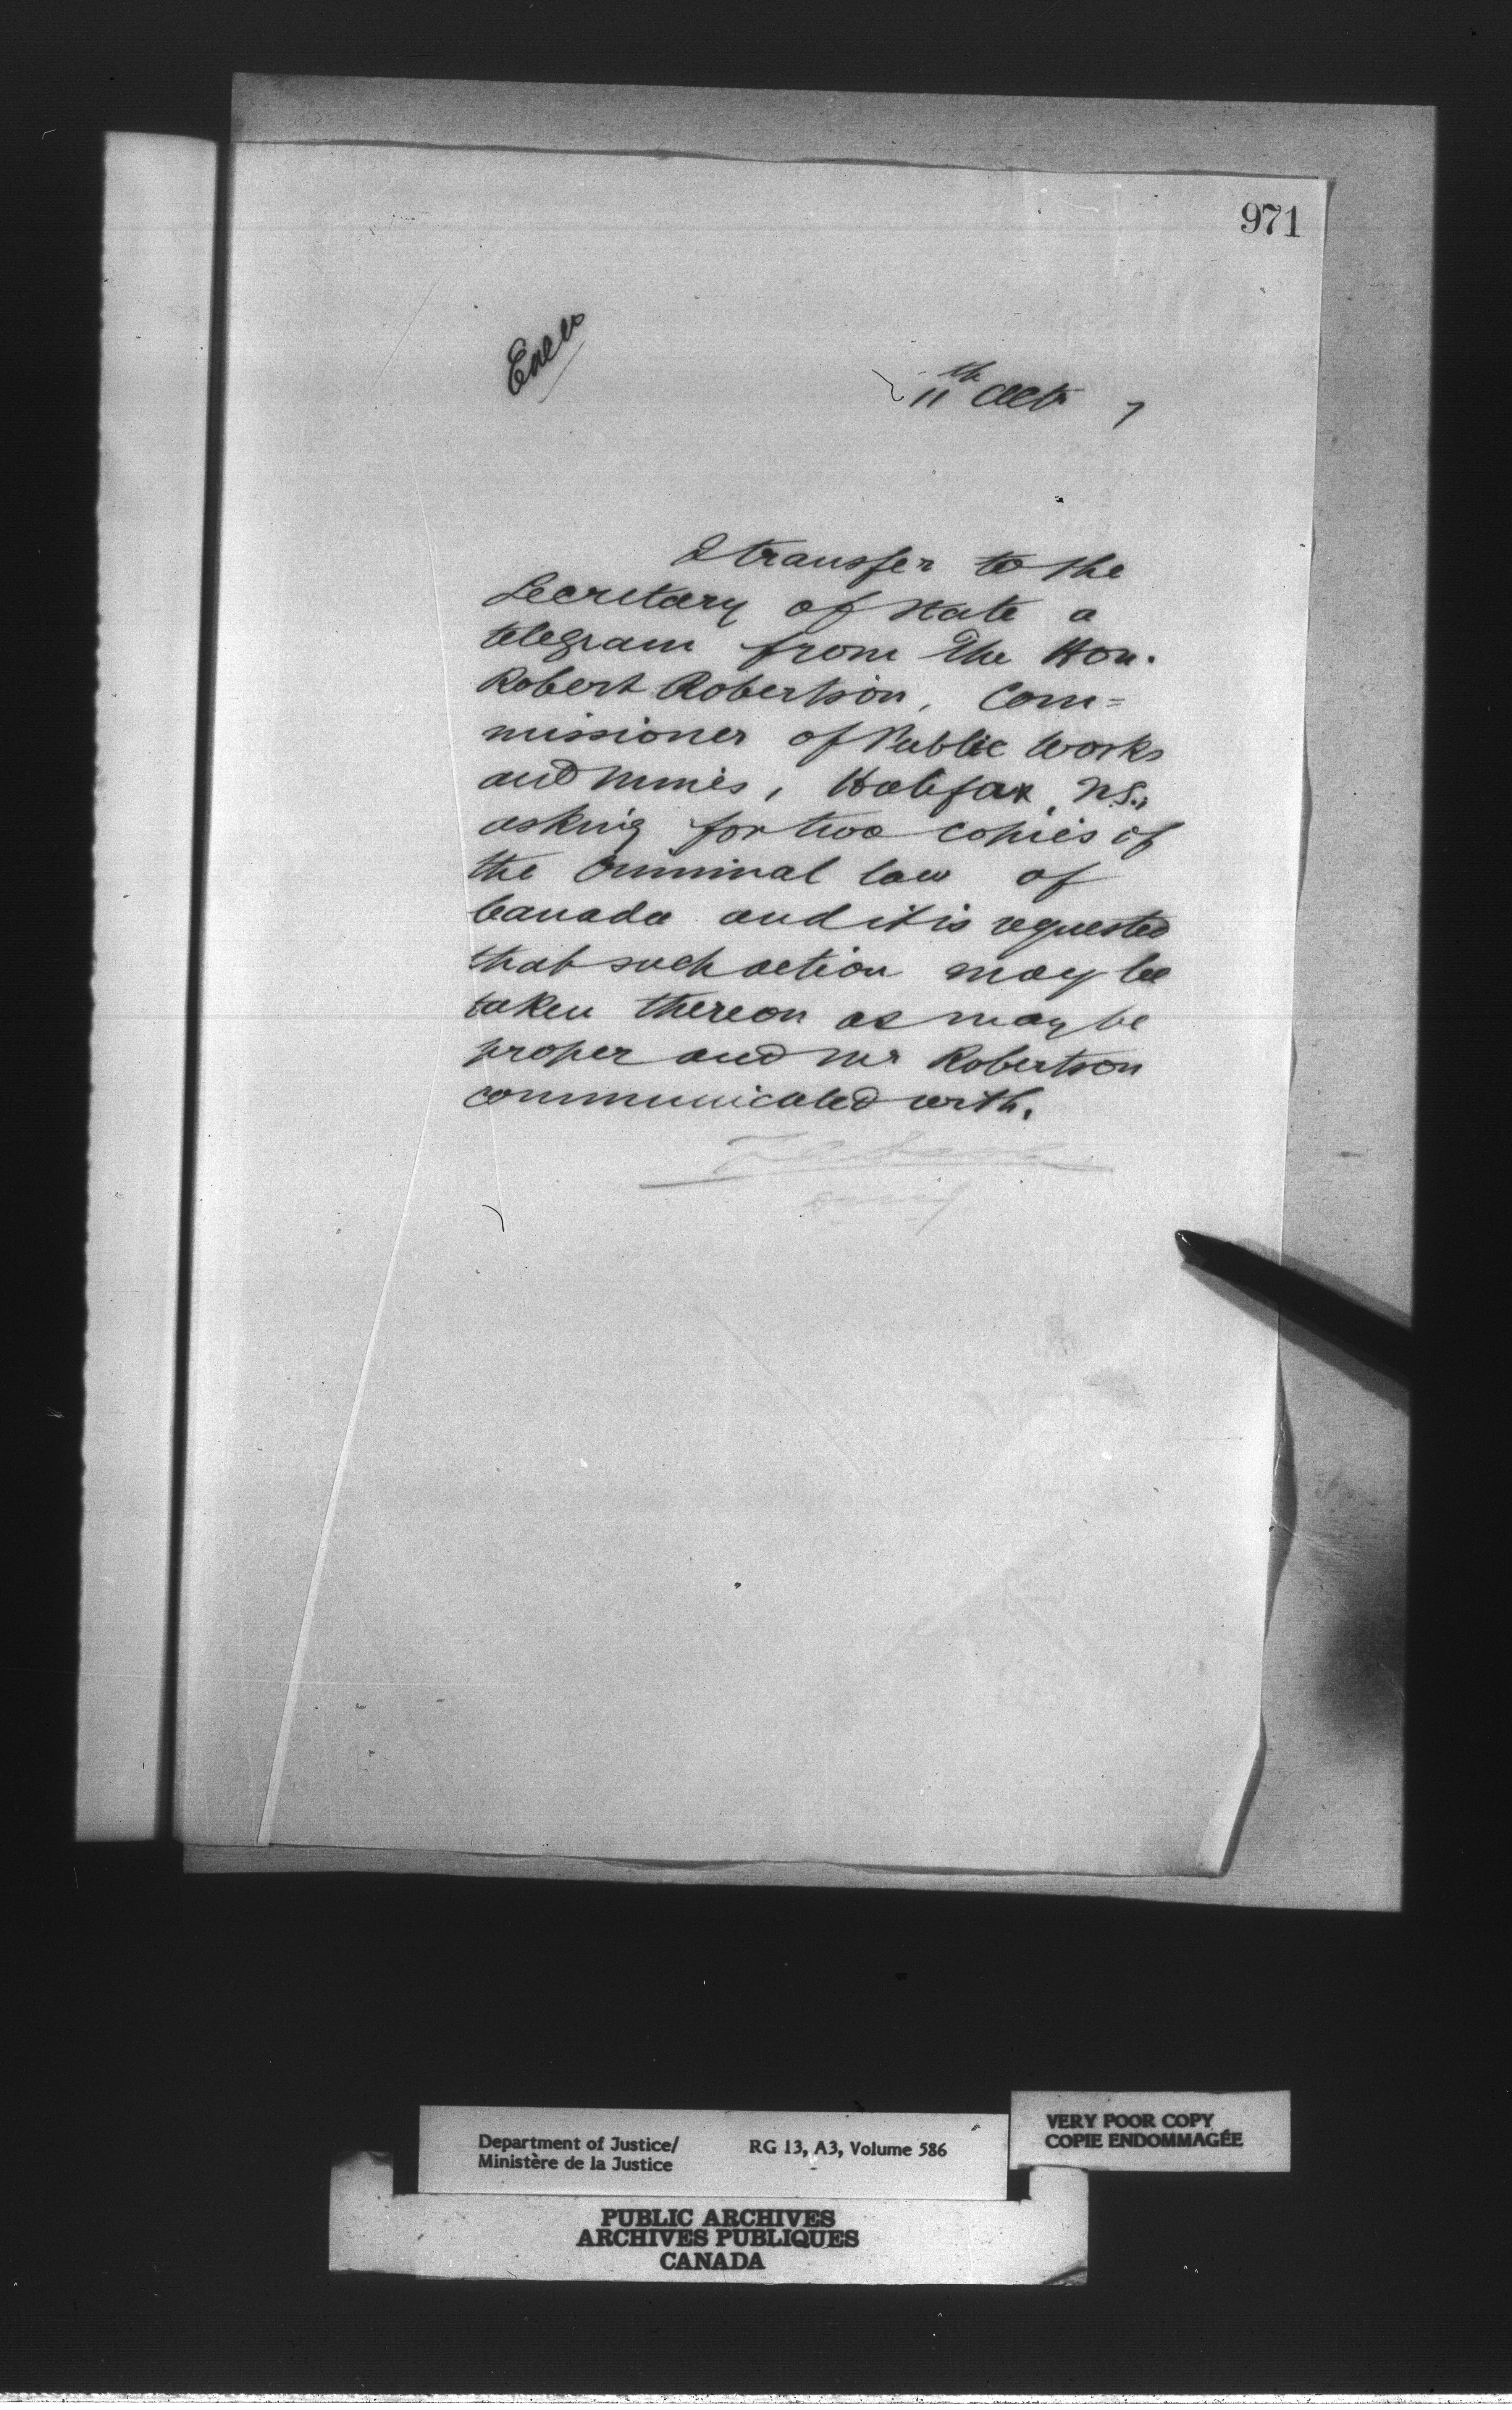 971
Encs
11th Octr 7
I transfer to the
Secretary of State a
telegram from The Hon.
Robert Robertson, Com=
missioner of Public Works
and Mines, Halifax, N.S.,
asking for two copies of
the Criminal law of
Canada and it is requested
that such action may be
taken thereon as may be
proper and Mr Robertson
communicated with.
Department of Justice/
Ministère de la Justice
RG 13, A3, Volume 586
VERY POOR COPY
COPIE ENDOMMAGÉE
PUBLIC ARCHIVES
ARCHIVES PUBLIQUES
CANADA